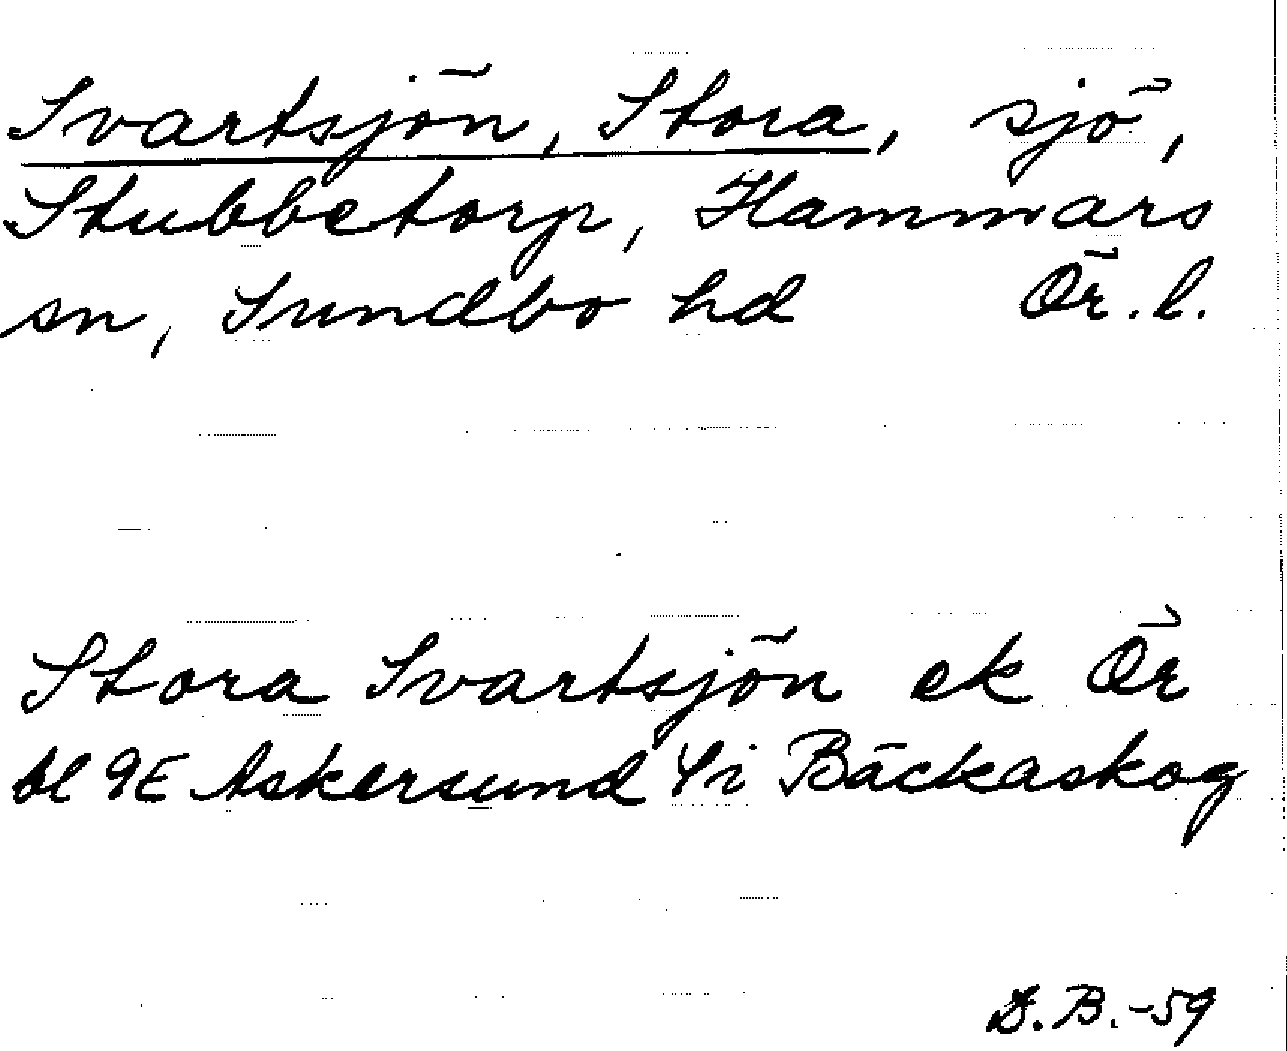 Svartsjön, Stora, sjö,
Stubbetorp, Hammars
sn, Sundbo hd Ör. l.
Stora Svartsjön ek Ör
bl 9E Askersund 4i Bäckaskog
D.B.-59